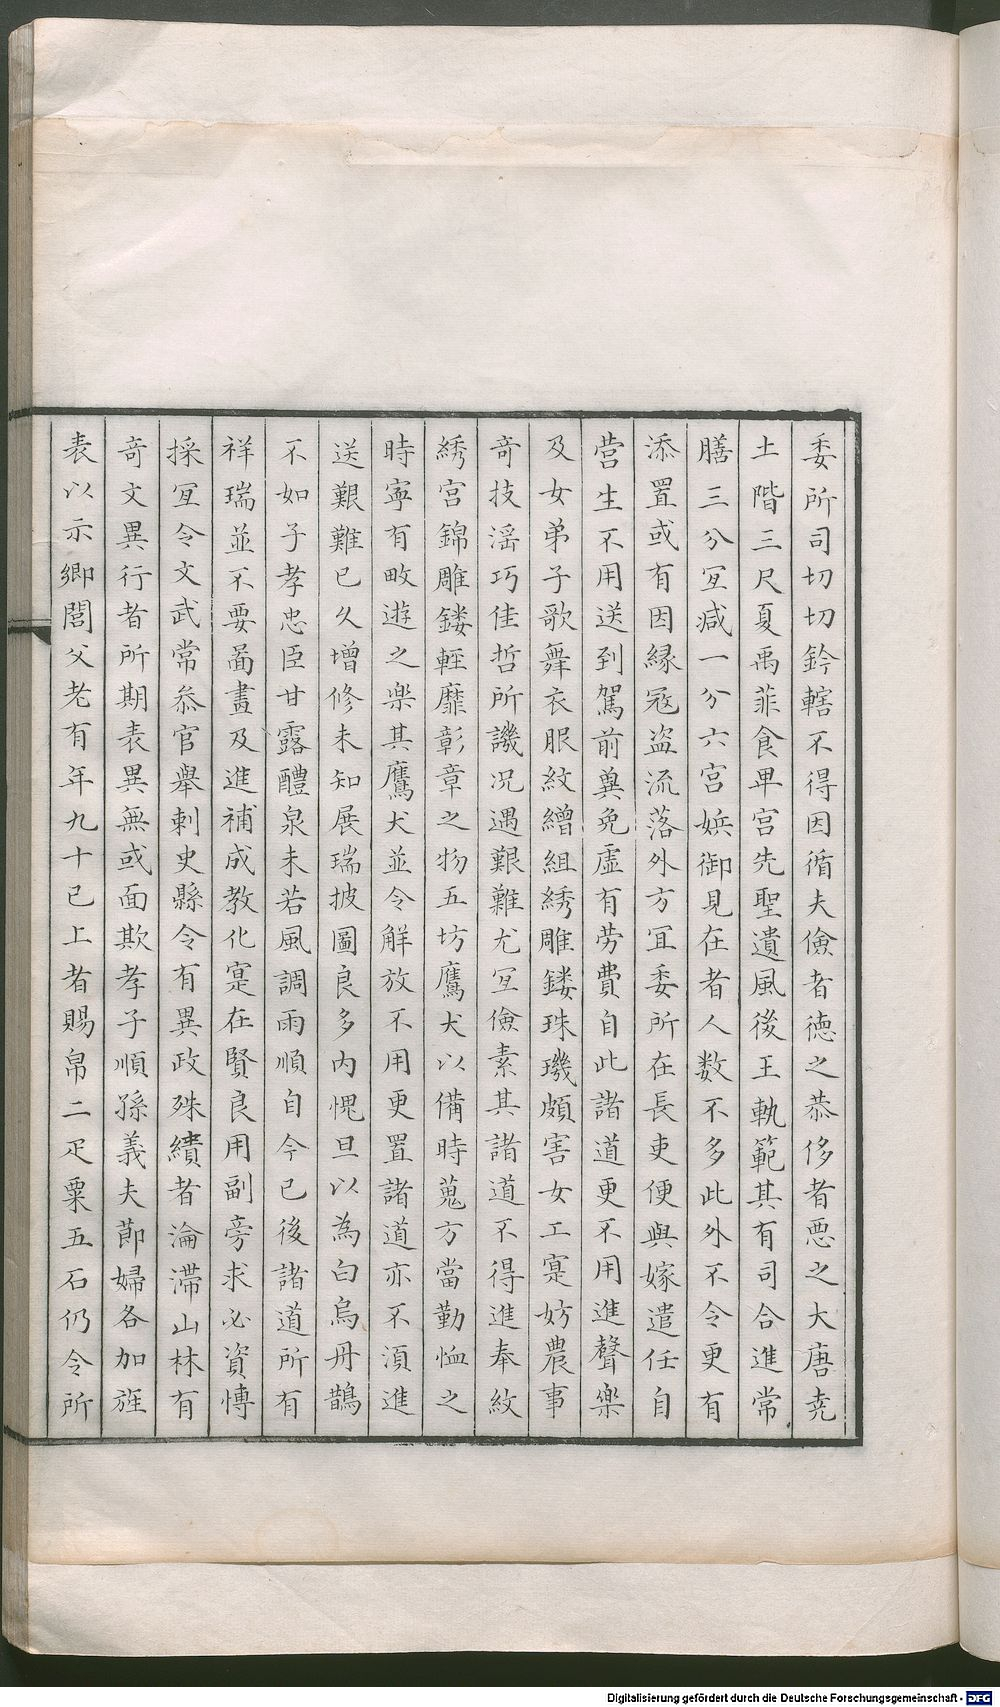 委所司切切鈐轄不得因循夫儉者德之恭侈者惡之大唐堯
土階三尺夏禹菲食卑宮先聖遺風後王軌範其有司合進常
膳三分宜減一分六宮嬪御見在者人数不多此外不令更有
添置或有因緣冦盗流落外方宜委所在長吏便與嫁遣任自
营生不用送到駕前兾免虛有劳費自此諸道更不用進聲樂
及女弟子歌舞衣服紋繒組綉雕鏤珠璣頗害女工寔妨農事
奇技淫巧佳哲所譏况遇艱難尤宜儉素其諸道不得進奉紋
綉宮錦雕鏤輕靡彰章之物五坊鷹犬以備時蒐方當勤恤之
時寧有畋遊之樂其鷹犬並令解放不用更置諸道亦不湏進
送艱難已久增修未知展瑞披圖良多内愧旦以為白烏丹鵲
不如子孝忠臣甘露醴泉未若風調雨順自今已後諸道所有
祥瑞並不要啚畫及進補成教化寔在賢良用副旁求必資慱
採宜令文武常叅官舉刺史縣令有異政殊績者淪滯山林有
奇文異行者所期表異無或面欺孝子順孫義夫節婦各加旌
表以示卿閭父老有年九十已上者賜帛二疋粟五石仍令所
Digitalisierung gefördert durch die Deutsche Forschungsgemeinschaft - DFG